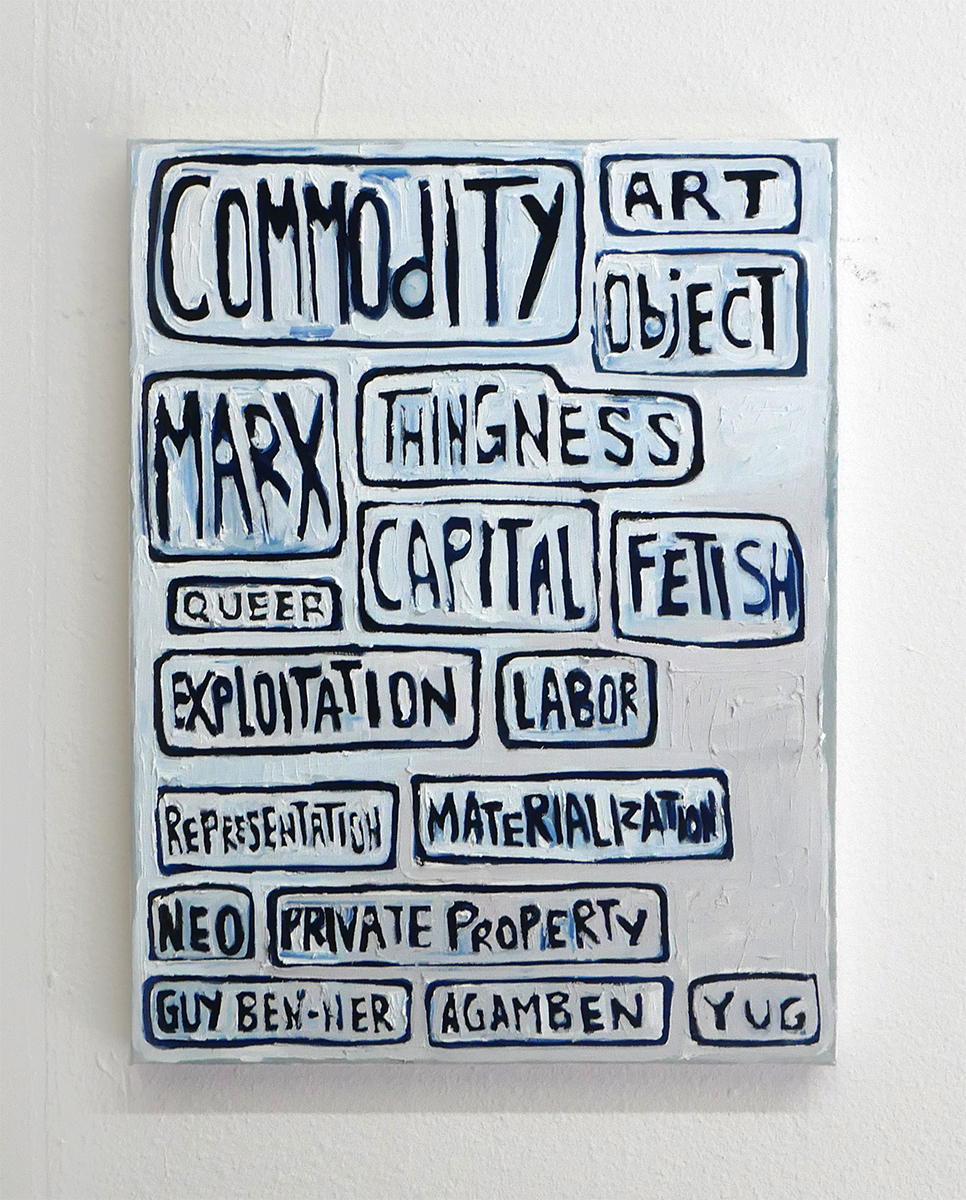 COMMOdITY
ART
ObjECT
MARX
THINGNESS
CAPITAL
FETISH
QUEER
EXPLOITATION
LABOR
REPRESENTATION
MATERIALIZATION
NEO
PRIVATE PROPERTY
GUY BEN-NER
AGAMBEN
YUG